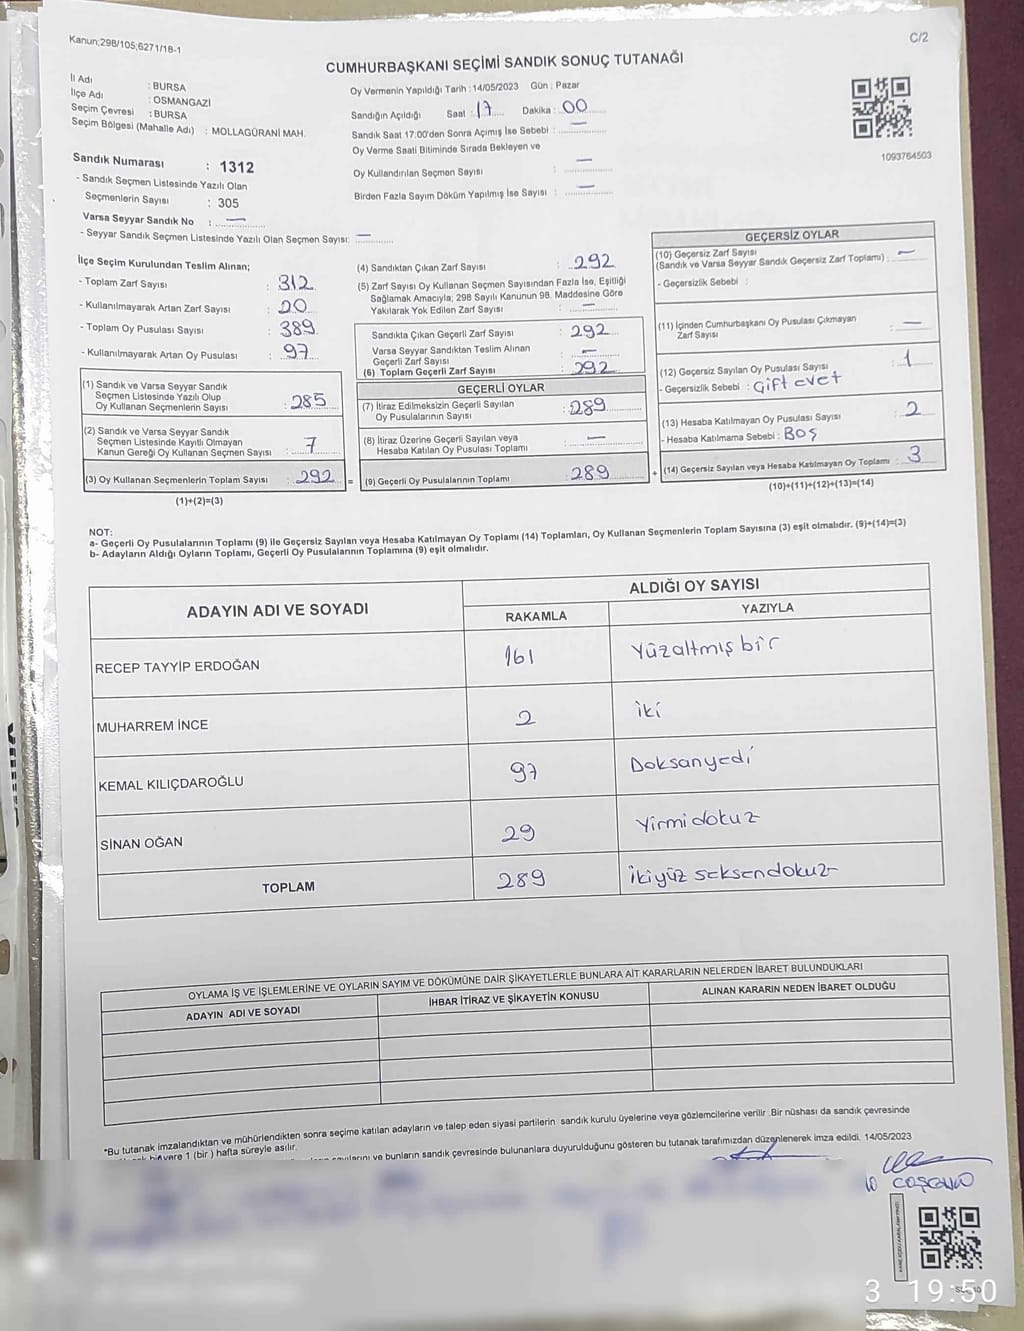 Kanun;298/105;6271/18-1
C/2
CUMHURBAŞKANI SEÇİMİ SANDIK SONUÇ TUTANAĞI
İl Adı : BURSA
İlçe Adı : OSMANGAZİ
Seçim Çevresi : BURSA
Seçim Bölgesi (Mahalle Adı) : MOLLAGÜRANİ MAH.
Sandık Numarası : 1312
- Sandık Seçmen Listesinde Yazılı Olan
Seçmenlerin Sayısı : 305
Varsa Seyyar Sandık No : —
- Seyyar Sandık Seçmen Listesinde Yazılı Olan Seçmen Sayısı: —
Oy Vermenin Yapıldığı Tarih : 14/05/2023 Gün : Pazar
Sandığın Açıldığı Saat : 17 Dakika : 00
Sandık Saat 17:00'den Sonra Açımış İse Sebebi : —
Oy Verme Saati Bitiminde Sırada Bekleyen ve
Oy Kullandırılan Seçmen Sayısı : —
Birden Fazla Sayım Döküm Yapılmış İse Sayısı : —
1093764503
İlçe Seçim Kurulundan Teslim Alınan;
- Toplam Zarf Sayısı : 312
- Kullanılmayarak Artan Zarf Sayısı : 20
- Toplam Oy Pusulası Sayısı : 389
- Kullanılmayarak Artan Oy Pusulası : 97
(1) Sandık ve Varsa Seyyar Sandık
Seçmen Listesinde Yazılı Olup
Oy Kullanan Seçmenlerin Sayısı : 285
(2) Sandık ve Varsa Seyyar Sandık
Seçmen Listesinde Kayıtlı Olmayan
Kanun Gereği Oy Kullanan Seçmen Sayısı : 7
(3) Oy Kullanan Seçmenlerin Toplam Sayısı : 292 =
(1)+(2)=(3)
(4) Sandıktan Çıkan Zarf Sayısı : 292
(5) Zarf Sayısı Oy Kullanan Seçmen Sayısından Fazla İse, Eşitliği
Sağlamak Amacıyla; 298 Sayılı Kanunun 98. Maddesine Göre
Yakılarak Yok Edilen Zarf Sayısı : —
Sandıkta Çıkan Geçerli Zarf Sayısı : 292
Varsa Seyyar Sandıktan Teslim Alınan
Geçerli Zarf Sayısı : —
(6) Toplam Geçerli Zarf Sayısı : 292
GEÇERLİ OYLAR
(7) İtiraz Edilmeksizin Geçerli Sayılan
Oy Pusulalarının Sayısı : 289
(8) İtiraz Üzerine Geçerli Sayılan veya
Hesaba Katılan Oy Pusulası Toplamı : —
(9) Geçerli Oy Pusulalarının Toplamı : 289 +
GEÇERSİZ OYLAR
(10) Geçersiz Zarf Sayısı
(Sandık ve Varsa Seyyar Sandık Geçersiz Zarf Toplamı) : —
- Geçersizlik Sebebi :
(11) İçinden Cumhurbaşkanı Oy Pusulası Çıkmayan
Zarf Sayısı : —
(12) Geçersiz Sayılan Oy Pusulası Sayısı : 1
- Geçersizlik Sebebi : Çift evet
(13) Hesaba Katılmayan Oy Pusulası Sayısı : 2
- Hesaba Katılmama Sebebi : Boş
(14) Geçersiz Sayılan veya Hesaba Katılmayan Oy Toplamı : 3
(10)+(11)+(12)+(13)=(14)
NOT:
a- Geçerli Oy Pusulalarının Toplamı (9) ile Geçersiz Sayılan veya Hesaba Katılmayan Oy Toplamı (14) Toplamları, Oy Kullanan Seçmenlerin Toplam Sayısına (3) eşit olmalıdır. (9)+(14)=(3)
b- Adayların Aldığı Oyların Toplamı, Geçerli Oy Pusulalarının Toplamına (9) eşit olmalıdır.
ADAYIN ADI VE SOYADI
ALDIĞI OY SAYISI
RAKAMLA YAZIYLA
RECEP TAYYİP ERDOĞAN 161 Yüzaltmış bir
MUHARREM İNCE 2 iki
KEMAL KILIÇDAROĞLU 97 Doksanyedi
SİNAN OĞAN 29 Yirmidokuz
TOPLAM 289 ikiyüz seksendokuz
OYLAMA İŞ VE İŞLEMLERİNE VE OYLARIN SAYIM VE DÖKÜMÜNE DAİR ŞİKAYETLERLE BUNLARA AİT KARARLARIN NELERDEN İBARET BULUNDUKLARI
ADAYIN ADI VE SOYADI İHBAR İTİRAZ VE ŞİKAYETİN KONUSU ALINAN KARARIN NEDEN İBARET OLDUĞU
*Bu tutanak imzalandıktan ve mühürlendikten sonra seçime katılan adayların ve talep eden siyasi partilerin sandık kurulu üyelerine veya gözlemcilerine verilir .Bir nüshası da sandık çevresinde
1 (bir ) hafta süreyle asılır.
ve bunların sandık çevresinde bulunanlara duyurulduğunu gösteren bu tutanak tarafımızdan düzenlenerek imza edildi. 14/05/2023
3 19:50